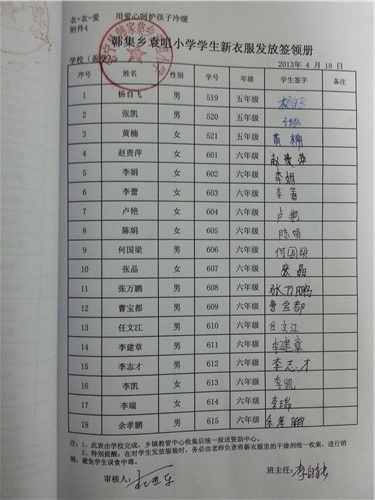 衣+衣=爱 用爱心呵护孩子冷暖
附件4
韩集乡袁咀小学学生新衣服发放签领册
学校（盖章） 2013年 4 月 18 日
序号 姓名 性别 学号 年级 学生签字 备注
1 杨自飞 男 519 五年级
2 张凯 男 520 五年级
3 黄楠 女 521 五年级 黄楠
4 赵贵萍 女 601 六年级 赵贵萍
5 李娟 女 602 六年级 李娟
6 李蕾 女 603 六年级 李蕾
7 卢艳 女 604 六年级 卢艳
8 陈娟 女 605 六年级 陈娟
9 何国梁 男 606 六年级 何国梁
10 张晶 女 607 六年级 张晶
11 张万鹏 男 608 六年级 张万鹏
12 曹宝都 男 609 六年级 曹宝都
13 任文江 男 610 六年级 任文江
14 李建章 男 611 六年级 李建章
15 李志才 男 612 六年级 李志才
16 李凯 女 613 六年级 李凯
17 李瑞 女 614 六年级 李瑞
18 余孝鹏 男 615 六年级 余孝鹏
注：1、此表由学校完成，乡镇教管中心收集后统一报送资助中心。
2、特别提醒：在对学生发放服装时，务必由老师负责将新衣服里的干燥剂统一收集，进行销
毁，避免学生误食中毒。
审核人： 班主任：